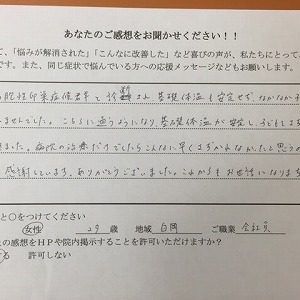 あなたのご感想をお聞かせください！！
て、「悩みが解消された」「こんなに改善した」など喜びの声が、私たちにとって、
です。また、同じ症状で悩んでいる方への応援メッセージなどもお願いします。
胞性卵巣症候群と診断され、基礎体温も安定せず、なかなか子
ませんでした。こちらに通うようになり、基礎体温が安定し、子どもも
きました。病院の治療だけでしたらこんなに早くさずかれなかったと思うの
感謝しています。ありがとうございました。これからもお世話になります
と○をつけてください
女性 29 歳 地域 白岡 ご職業 会社員
の感想をＨＰや院内掲示することを許可いただけますか？
する 許可しない